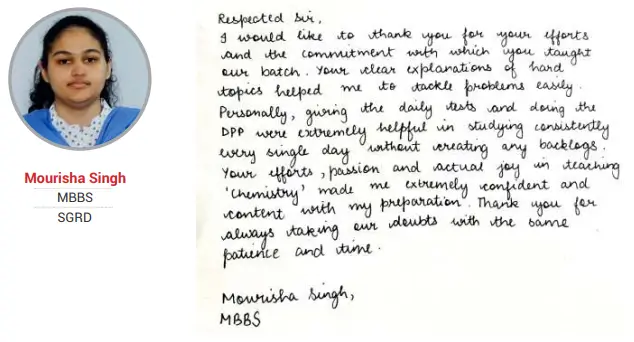 Mourisha Singh
MBBS
SGRD
Respected Sir,
I would like to thank you for your efforts
and the commitment with which you taught
our batch. Your clear explanations of hard
topics helped me to tackle problems easily.
Personally, giving the daily tests and doing the
DPP were extremely helpful in studying consistently
every single day without creating any backlogs.
Your efforts, passion and actual joy in teaching
'Chemistry' made me extremely confident and
content with my preparation. Thank you for
always taking our doubts with the same
patience and time.
Mourisha Singh,
MBBS